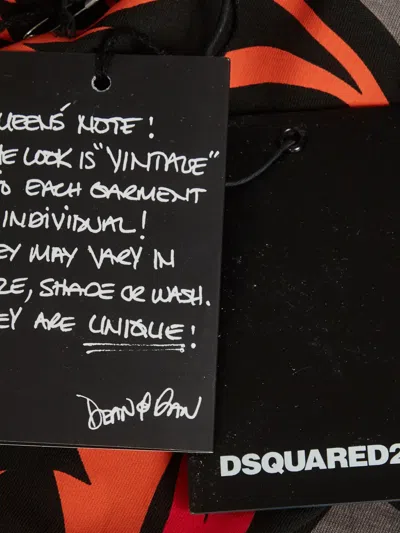 UEEN'S NOTE!
E LOOK IS "VINTAGE"
O EACH GARMENT
INDIVIDUAL!
EY MAY VARY IN
ZE, SHADE OR WASH.
EY ARE UNIQUE!
DEAN & DAN
DSQUARED2